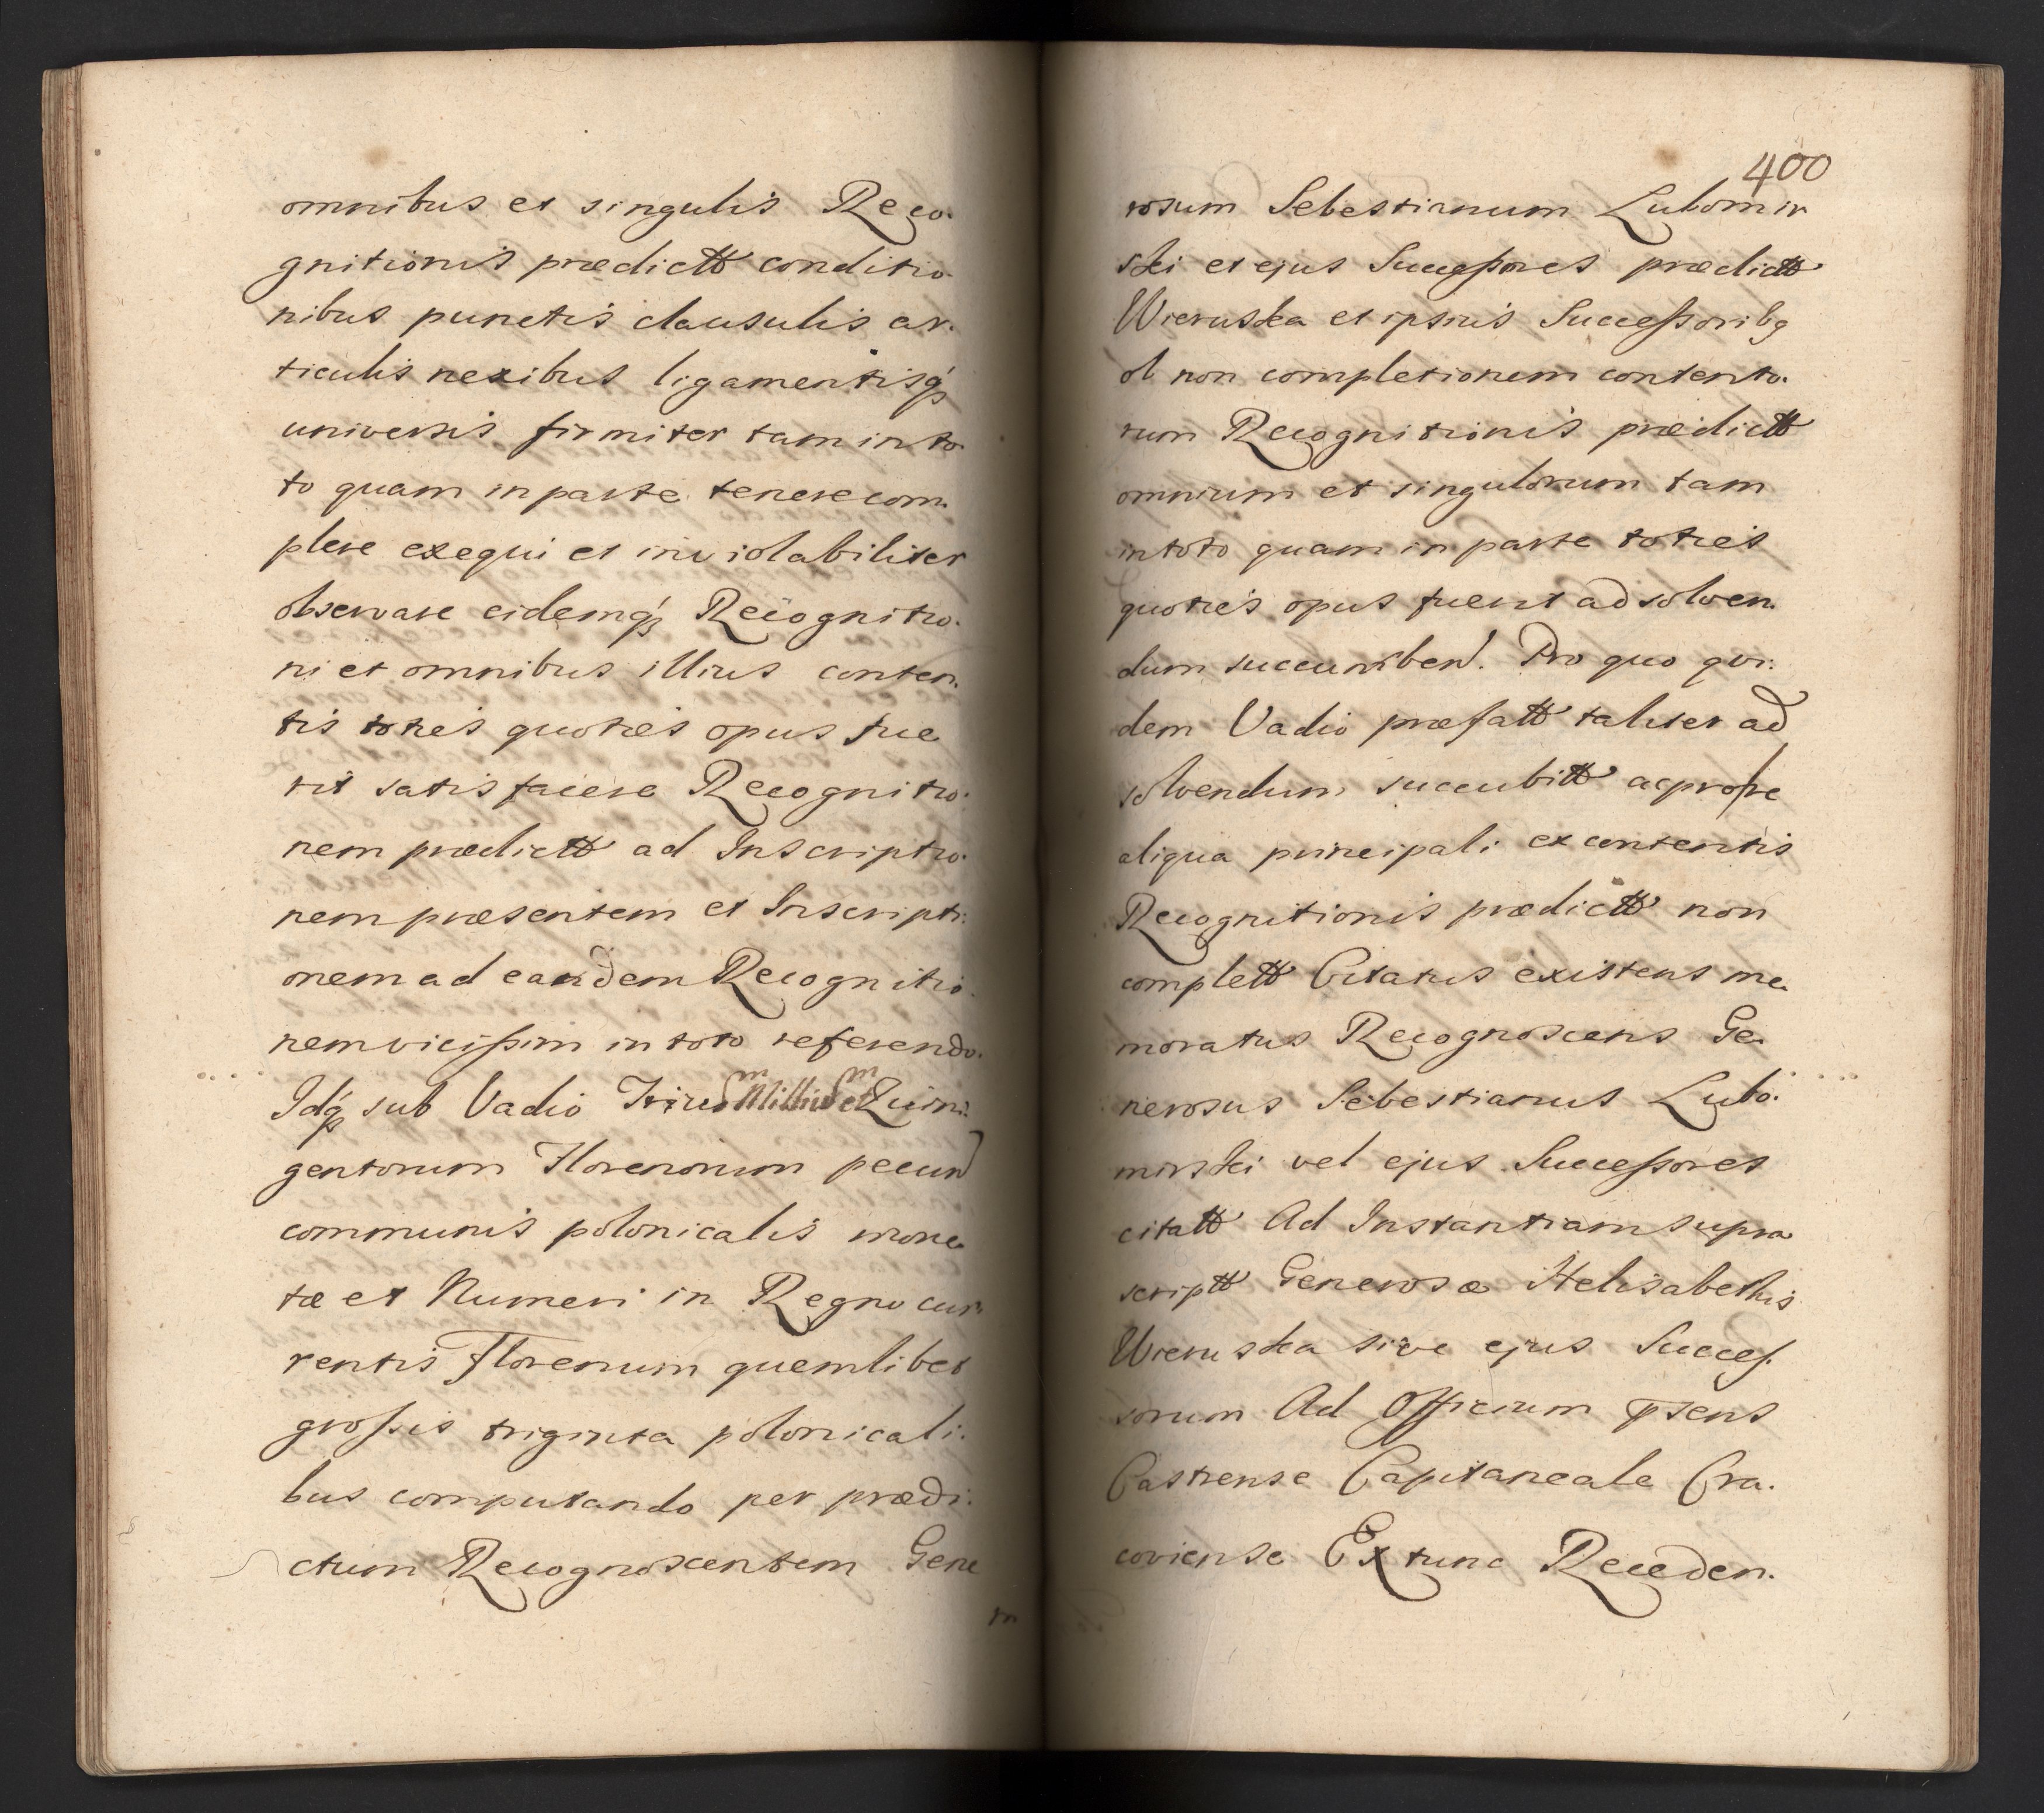 omnibus et singulis Reco-
gnitionis prædictt conditio-
nibus punctis clausulis ar-
ticulis nexibus ligamentisq́ꝫ
universis firmiter tam in to-
to quam in parte tenere com-
plere exequi et inviolabiliter
observare eidemq́ꝫ Recognitio-
ni et omnibus illius conten-
tis toties quoties opus fue
rit satisfacere Recognitio-
nem prædictt ad Inscriptio-
nem præsentem et Inscripti-
onem ad eandem Recognitio-
nem vicißim in toto referendo.
Idq́ꝫ sub Vadio Trium Milliu et Quin-
gentorum Florenorum pecun
communis polonicalis mone
tæ et Numeri in Regno cur-
rentis Florenum quemlibet
großis triginta polonicali-
bus computando per prædi-
ctum Recognoscentem Gene
400
rosum Sebestianum Lubomir
ski et ejus Succeßores prædictt
Wieruska et ipsius Succeßoribꝫ
ob non completionem contento-
rum Recognitionis prædictt
omnium et singulorum tam
in toto quam in parte toties
quoties opus fuerit ad solven-
dum succumben. Pro quo qui-
dem Vadio præfatt taliter ad
solvendum succubitt ac pro re
aliqua principali ex contentis
Recognitionis prædictt non
complett Citatus existens me
moratus Recognoscens Ge
nerosus Sebestianus Lubo-
mirski vel ejus Succeßores
citatt Ad Instantiam supra
scriptt Generosæ Helisabethis
Wieruska sive ejus Succes-
sorum Ad Officium p̄sens
Castrense Capitaneale Cra-
coviense Extunc Receden-